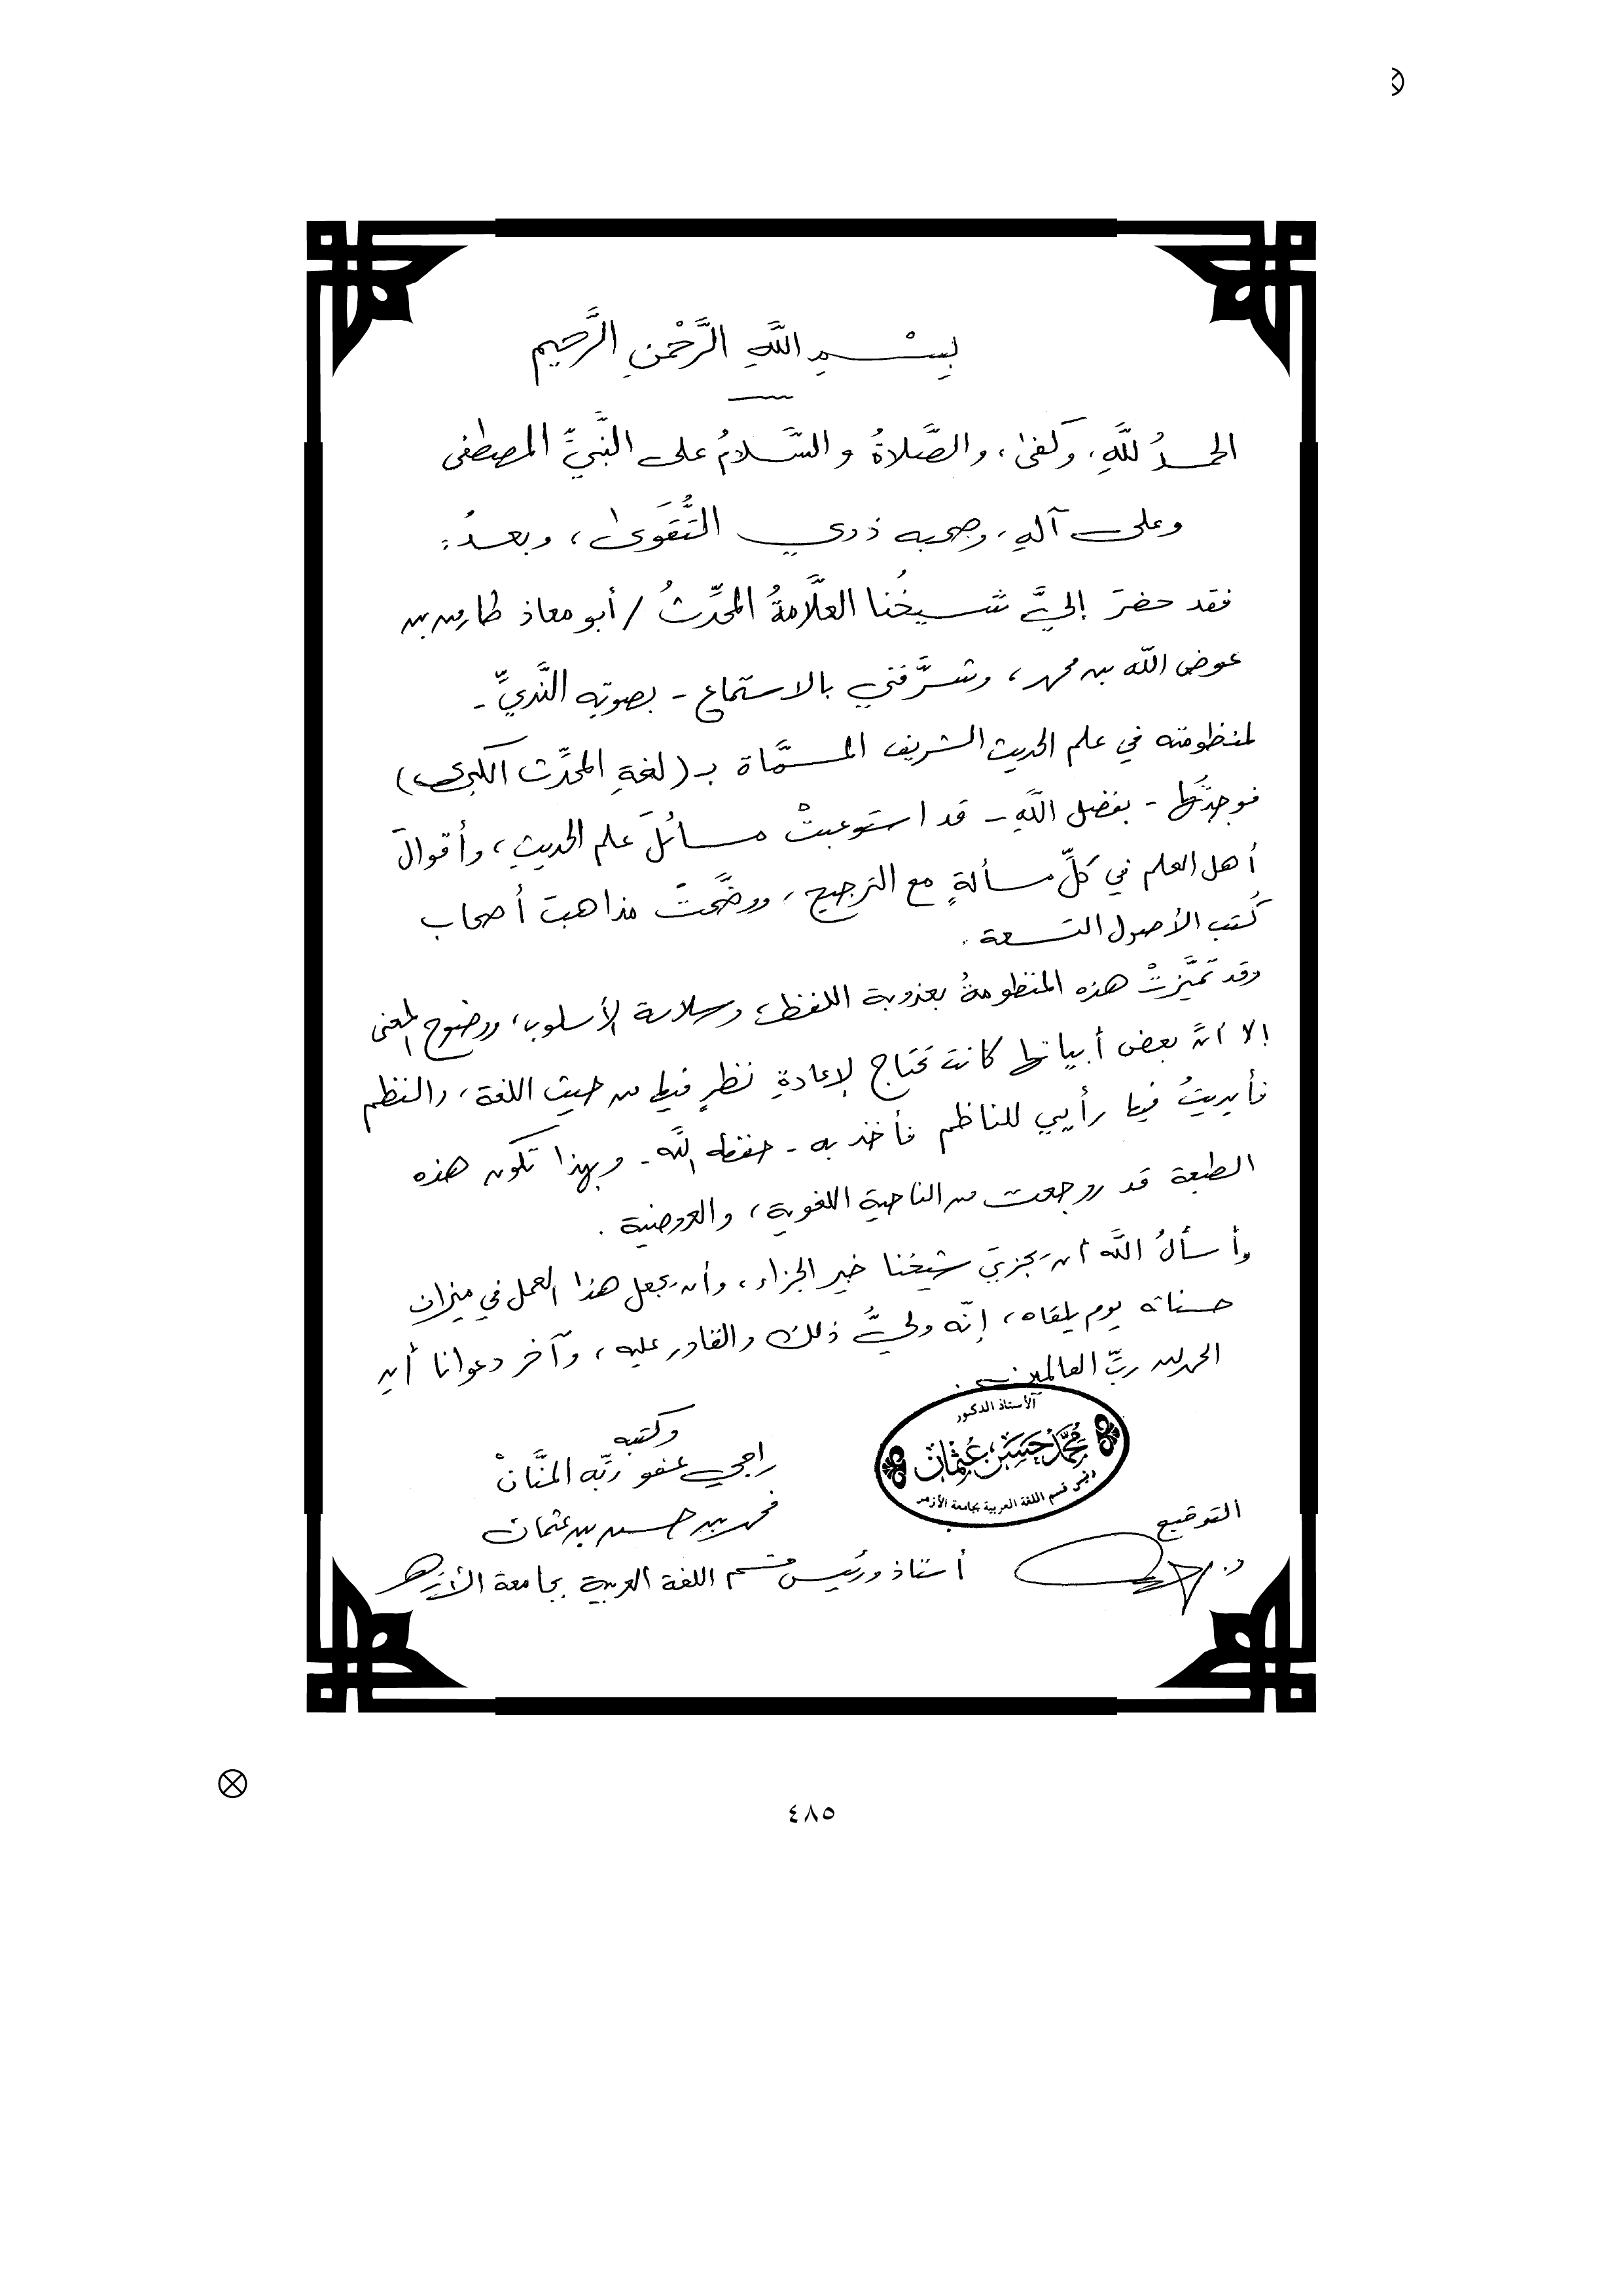 بِسْمِ اللَّهِ الرَّحْمٰنِ الرَّحِيمِ
الحمدُ للَّهِ، وكفىٰ، والصَّلاةُ والسَّلامُ على النَّبيِّ المصطفى
وعلى آلهِ، وصحبه ذوي التُّقَوىٰ، وبعدُ:
فقد حضرَ إليَّ شيخُنا العلَّامةُ المحدِّثُ / أبو معاذ طارق بن
عوض الله بن محمد، وشرَّفني بالاستماع - بصوتِه النَّديِّ -
لمنظومته في علم الحديث الشريف المسمَّاة بـ (لغةِ المحدِّث الكبرى)
فوجدتُها - بفضل اللَّهِ - قد استوعبتْ مسائلَ علم الحديثِ، وأقوالَ
أهل العلم في كلِّ مسألةٍ مع الترجيح، ووضَّحتْ مذاهبَ أصحاب
كُتب الأصول التسعة.
وقد تميَّزتْ هذه المنظومةُ بعذوبة اللفظ، وسلاسة الأسلوب، ووضوح المعنى
إلا أنَّ بعض أبياتها كانت تحتاج لإعادةِ نظرٍ فيها من حيث اللغة، والنظم
فأبديتُ فيها رأيي للناظم فأخذ به - حفظه اللَّه - وبهذا تكون هذه
الطبعة قد روجعت من الناحية اللغوية، والعروضية.
وأسألُ اللَّه أن يجزيَ شيخَنا خير الجزاء، وأن يجعل هذا العمل في ميزان
حسناته يوم يلقاه، إنّه وليُّ ذلك والقادر عليه، وآخر دعوانا أن
الحمد لله ربِّ العالمين.
وكتبه
راجي عفو ربِّه المنَّانْ
محمد بن حسن بن عثمان
أستاذ ورئيس قسم اللغة العربية بجامعة الأزهر
الأستاذ الدكتور
مُحَمَّد حَسَن عُثمان
رئيس قسم اللغة العربية بجامعة الأزهر
التوقيع
٤٨٥